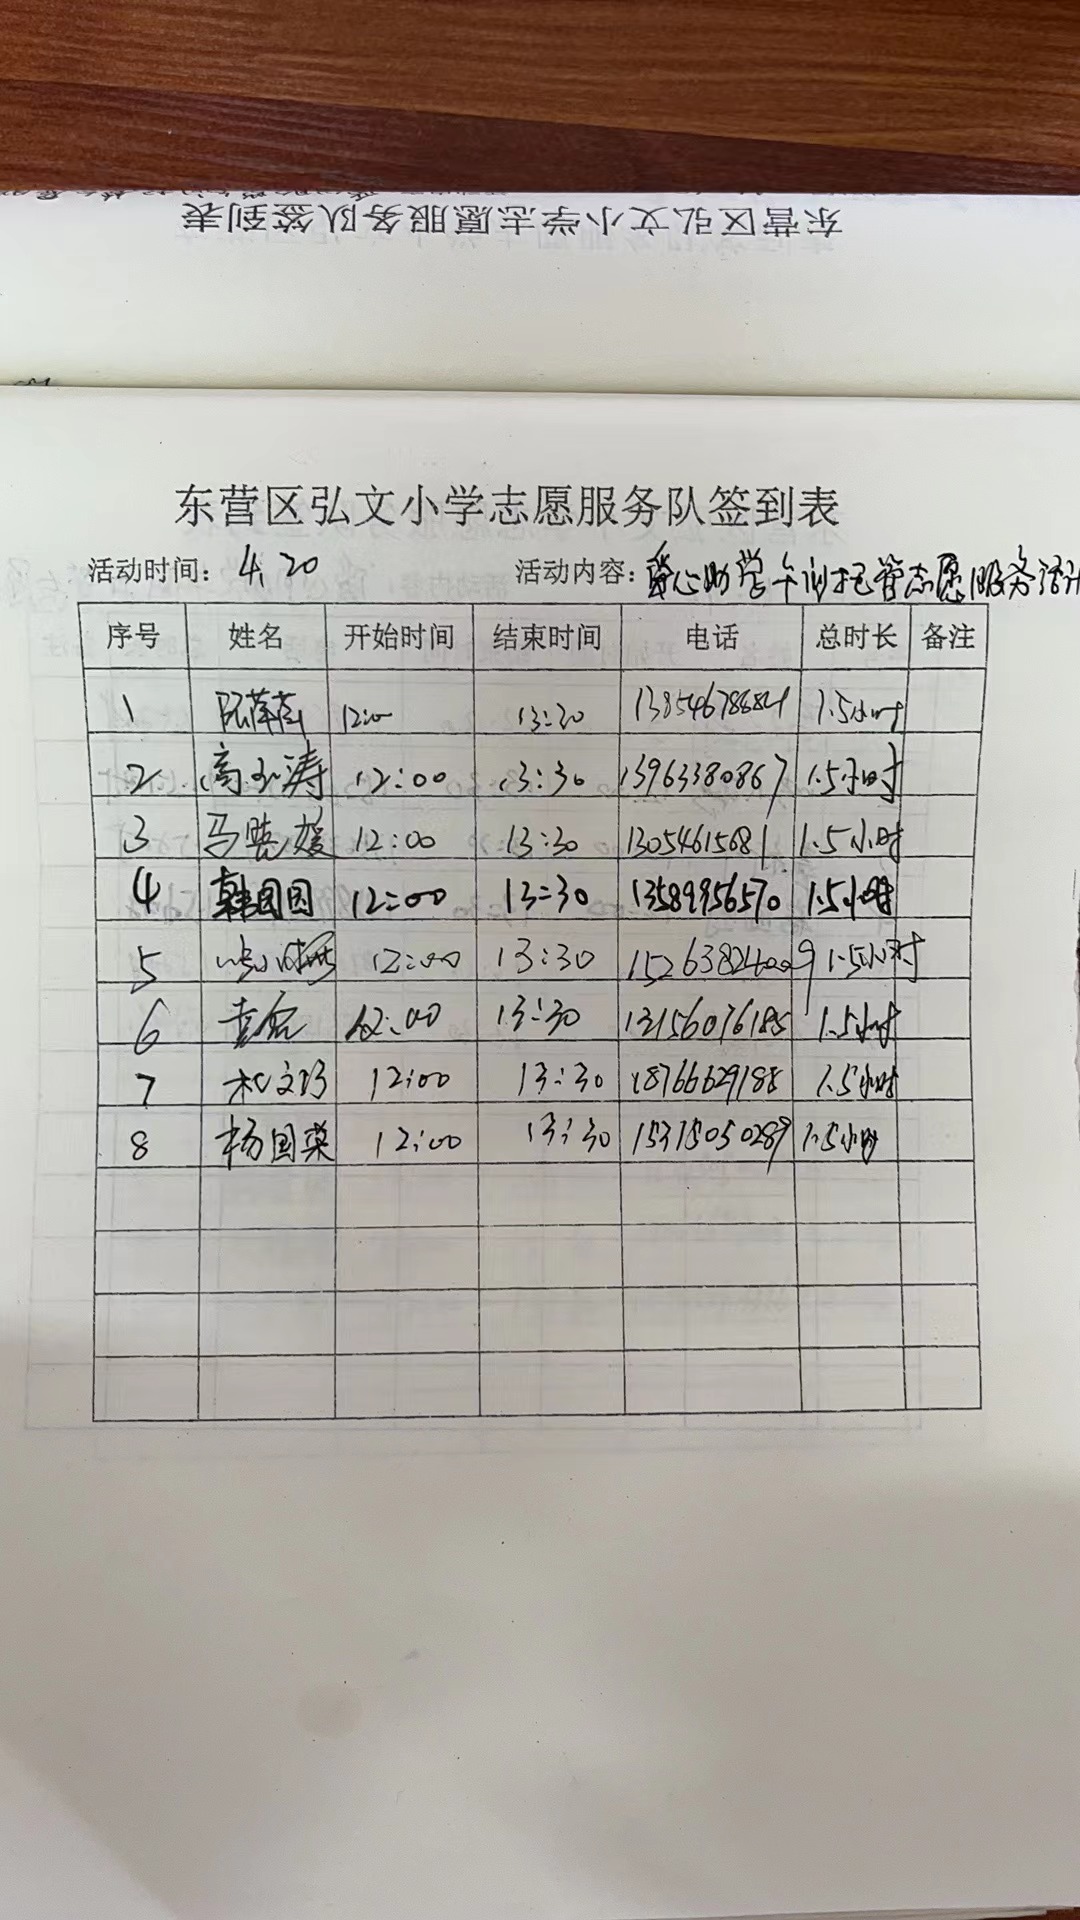 东营区弘文小学志愿服务队签到表
东营区弘文小学志愿服务队签到表
活动时间：4.20 活动内容：爱心助学午间托管志愿服务活动
序号 姓名 开始时间 结束时间 电话 总时长 备注
1 12:00 13:30 13854678684 1.5小时
2 高玉涛 12:00 13:30 13963380867 1.5小时
3 马晓媛 12:00 13:30 13054615681 1.5小时
4 韩园园 12:00 13:30 13589956570 1.5小时
5 12:00 13:30 15263824009 1.5小时
6 12:00 13:30 13156076185 1.5小时
7 12:00 13:30 18766629188 1.5小时
8 杨国荣 12:00 13:30 15315050289 1.5小时